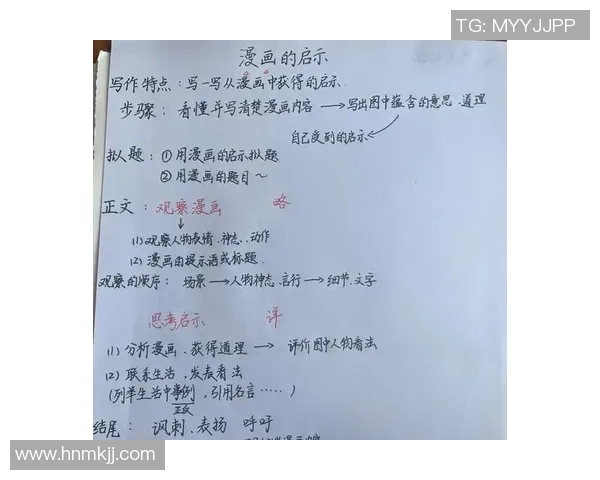 TG: MYYJJPP
漫画的启示
写作特点：写一写从漫画中获得的启示.
步骤：看懂并写清楚漫画内容 → 写出图中蕴含的意思、道理
自己受到的启示
拟题：① 用漫画的启示拟题
② 用漫画的题目～
正文：观察漫画 略
(1) 观察人物表情、神态、动作
(2) 漫画的提示语或标题.
观察的顺序：场景 → 人物神态、言行 → 细节、文字
思考启示 详
(1) 分析漫画、获得道理 → 评价图中人物看法
(2) 联系生活，发表看法
(列举生活中事例，引用名言……)
正反
结尾：讽刺、表扬 呼吁
www.hnmkjj.com